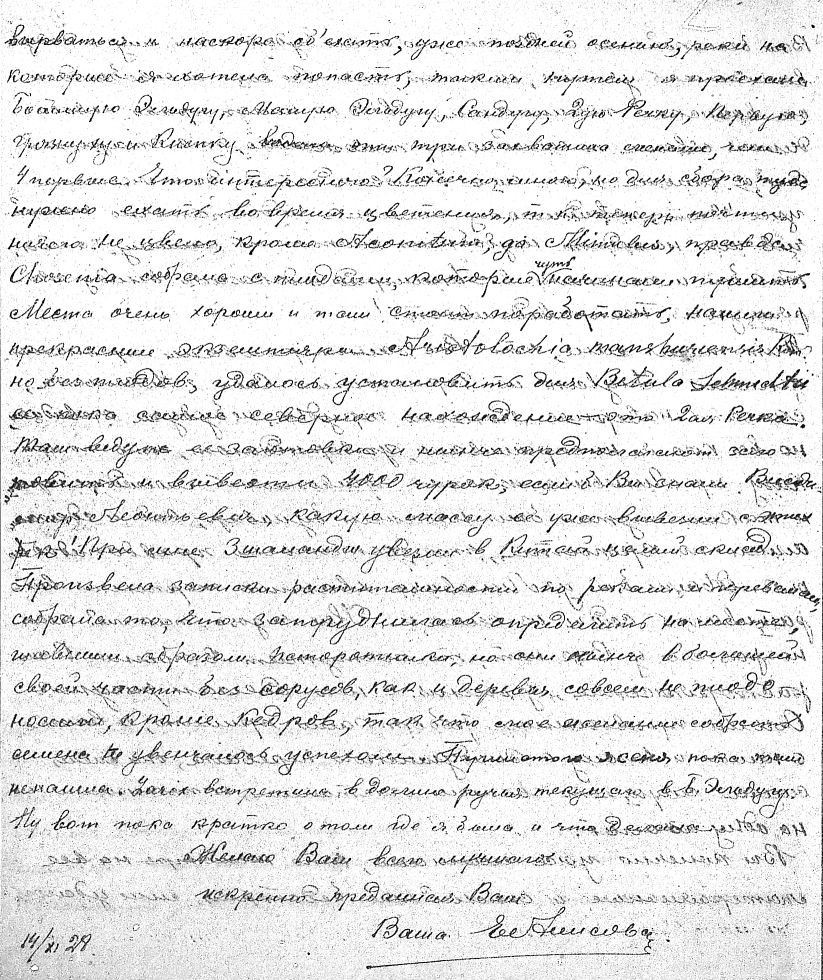 вырваться и наскоро об'ехать, уже поздней осенью, реки на
которые я хотела попасть, таким путем я проехала
Большую Эльдугу, Малую Эльдугу, Сандугу, 2ую Речку, Первую,
Грязнуху и эти три захватила меньше, чем
4 первые. Что интересного? Конечно много, но для сбора
нужно ехать во время цветения, т.к. теперь почти
ничего не цвело, кроме Aconitum, да Mimulus, правда
Chosenia собрала с плодами, которые чуть начинали
Места очень хороши и там стоит поработать, нашла
прекрасные экземпляры Aristolochia manshuriensis Kom
но без плодов, удалось установить для Betula Schmidtii
самое северное нахождение - это 2ая Речка.
Там ведутся ее заготовки и нынче предполагают заго
товить и вывезти 4000 чурок, если б Вы знали
Леонтьевич, какую массу ее уже вывезли с этих
рек! При мне 3 шаланды увезли в Китай целый склад
Произвела записки растительности по рекам и перевалам,
собрала то, что затруднилась определить на месте,
главным образом папоротники, но они нынче в большей
своей части без сорусов, как и деревья совсем не плодо
носили, кроме кедров, так что мое желание собрать
семена не увенчалось успехом. ясеня пока
не нашла. Larix встретила в долине ручья текущего в Б. Эльдугу.
Ну вот пока кратко о том где я была и что делала
Желаю Вам всего
искренно преданная Вам
Ваша Ев Алисова
14/XI 28